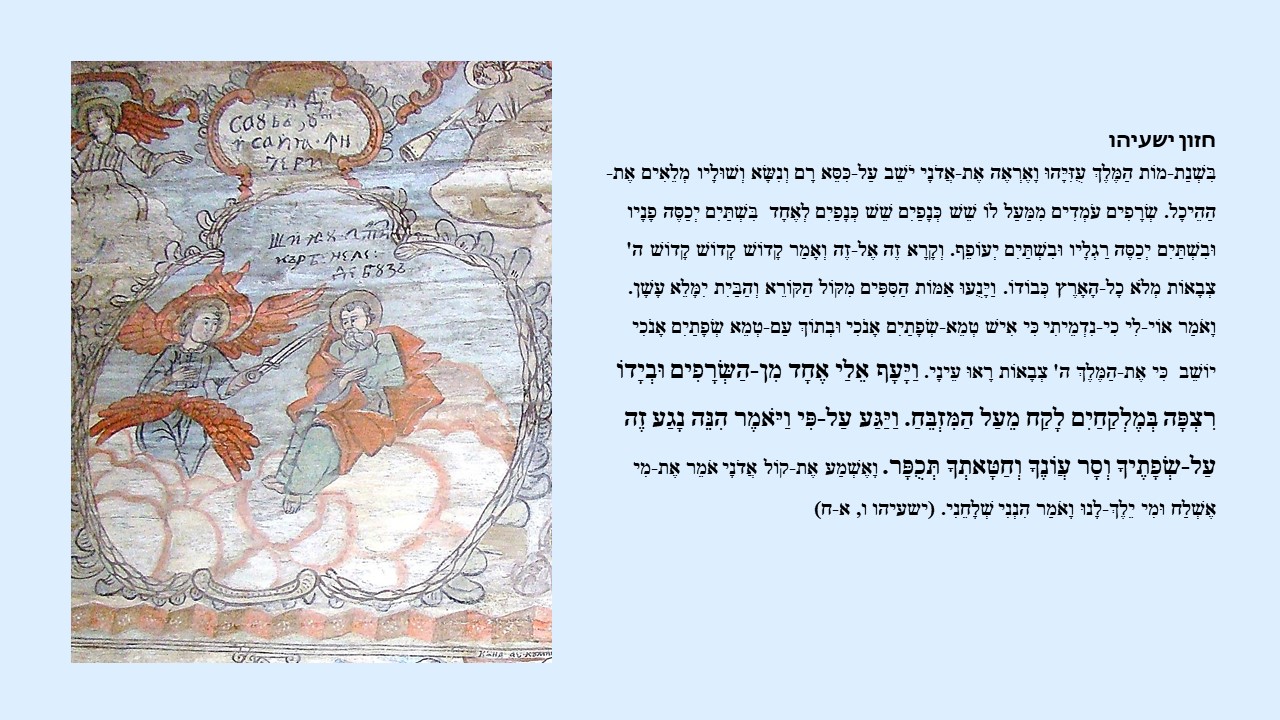 חזון ישעיהו
בִּשְׁנַת-מוֹת הַמֶּלֶךְ עֻזִּיָּהוּ וָאֶרְאֶה אֶת-אֲדֹנָי יֹשֵׁב עַל-כִּסֵּא רָם וְנִשָּׂא וְשׁוּלָיו מְלֵאִים אֶת-
הַהֵיכָל. שְׂרָפִים עֹמְדִים מִמַּעַל לוֹ שֵׁשׁ כְּנָפַיִם שֵׁשׁ כְּנָפַיִם לְאֶחָד בִּשְׁתַּיִם יְכַסֶּה פָנָיו
וּבִשְׁתַּיִם יְכַסֶּה רַגְלָיו וּבִשְׁתַּיִם יְעוֹפֵף. וְקָרָא זֶה אֶל-זֶה וְאָמַר קָדוֹשׁ קָדוֹשׁ קָדוֹשׁ ה'
צְבָאוֹת מְלֹא כָל-הָאָרֶץ כְּבוֹדוֹ. וַיָּנֻעוּ אַמּוֹת הַסִּפִּים מִקּוֹל הַקּוֹרֵא וְהַבַּיִת יִמָּלֵא עָשָׁן.
וָאֹמַר אוֹי-לִי כִי-נִדְמֵיתִי כִּי אִישׁ טְמֵא-שְׂפָתַיִם אָנֹכִי וּבְתוֹךְ עַם-טְמֵא שְׂפָתַיִם אָנֹכִי
יוֹשֵׁב כִּי אֶת-הַמֶּלֶךְ ה' צְבָאוֹת רָאוּ עֵינָי. וַיָּעָף אֵלַי אֶחָד מִן-הַשְּׂרָפִים וּבְיָדוֹ
רִצְפָּה בְּמֶלְקַחַיִם לָקַח מֵעַל הַמִּזְבֵּחַ. וַיַּגַּע עַל-פִּי וַיֹּאמֶר הִנֵּה נָגַע זֶה
עַל-שְׂפָתֶיךָ וְסָר עֲוֹנֶךָ וְחַטָּאתְךָ תְּכֻפָּר. וָאֶשְׁמַע אֶת-קוֹל אֲדֹנָי אֹמֵר אֶת-מִי
אֶשְׁלַח וּמִי יֵלֶךְ-לָנוּ וָאֹמַר הִנְנִי שְׁלָחֵנִי. (ישעיהו ו, א-ח)